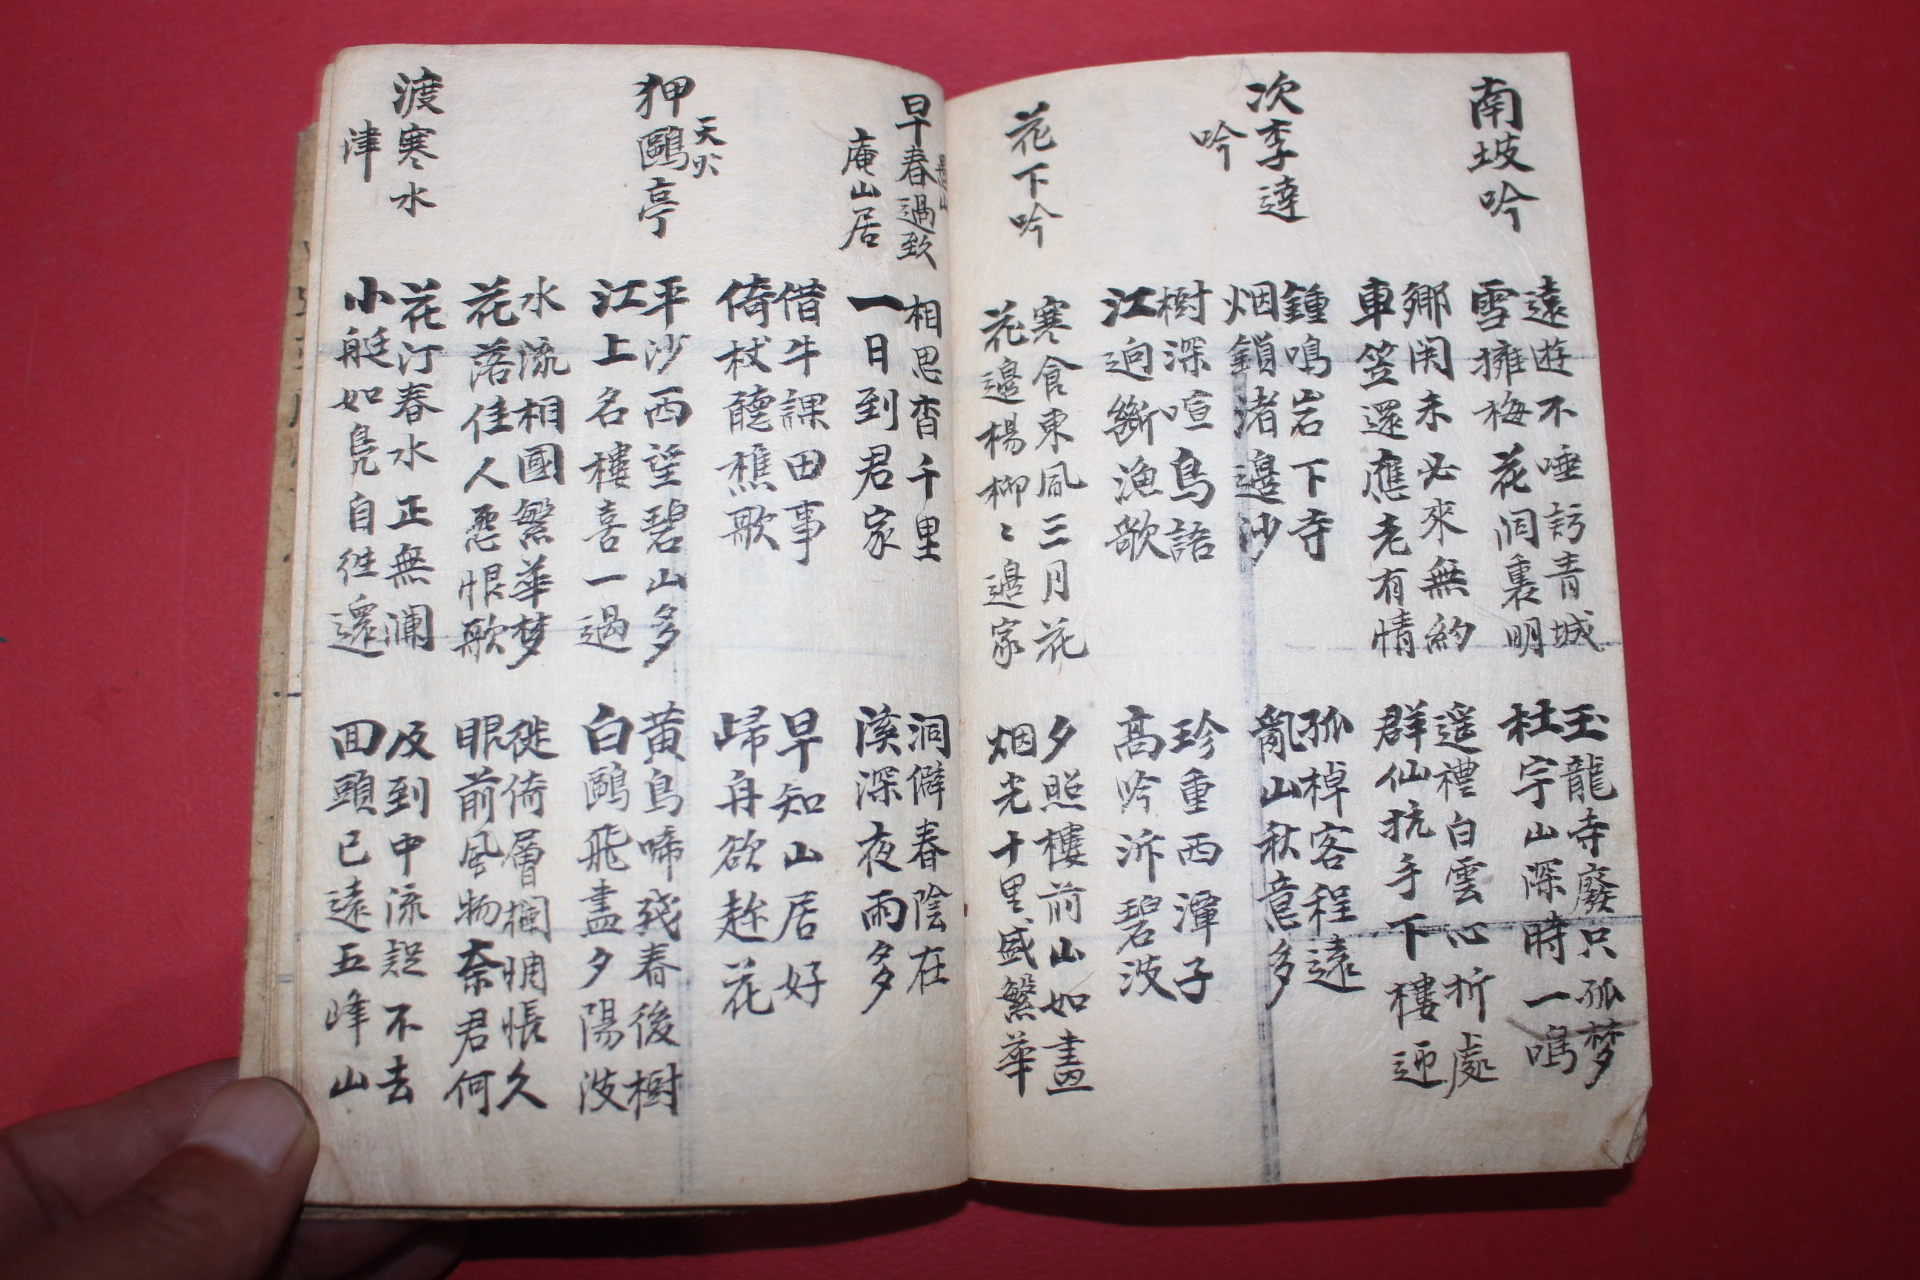 南坡吟
遠遊不唾訪青城
雪擁梅花洞裏明
玉龍寺廢只孤梦
杜宇山深時一鳴
鄉闲未必來無約
車笠還應老有情
遥禮白雲心折處
群仙抗手下樓迎
次李達
吟
鍾鳴岩下寺
烟鎖渚邊沙
孤棹客程遠
亂山秋意多
樹深喧鳥語
江逈斷漁歌
珍重西潭子
高吟泝碧波
花下吟
寒食東風三月花
花邊楊柳〻邊家
夕照樓前山如畫
烟光十里盛繁華
早春過致
庵山居
相思杳千里
一日到君家
洞僻春陰在
溪深夜雨多
借牛課田事
倚杖聽樵歌
早知山居好
歸舟欲趂花
狎鷗亭
天火
平沙西望碧山多
江上名樓喜一過
黄鳥啼殘春後樹
白鷗飛盡夕陽波
水流相國繁華梦
花落佳人惡恨歌
徙倚層欄惆悵久
眼前風物奈君何
渡寒水
津
花汀春水正無瀾
小艇如鳧自往還
及到中流疑不去
回頭已遠五峰山